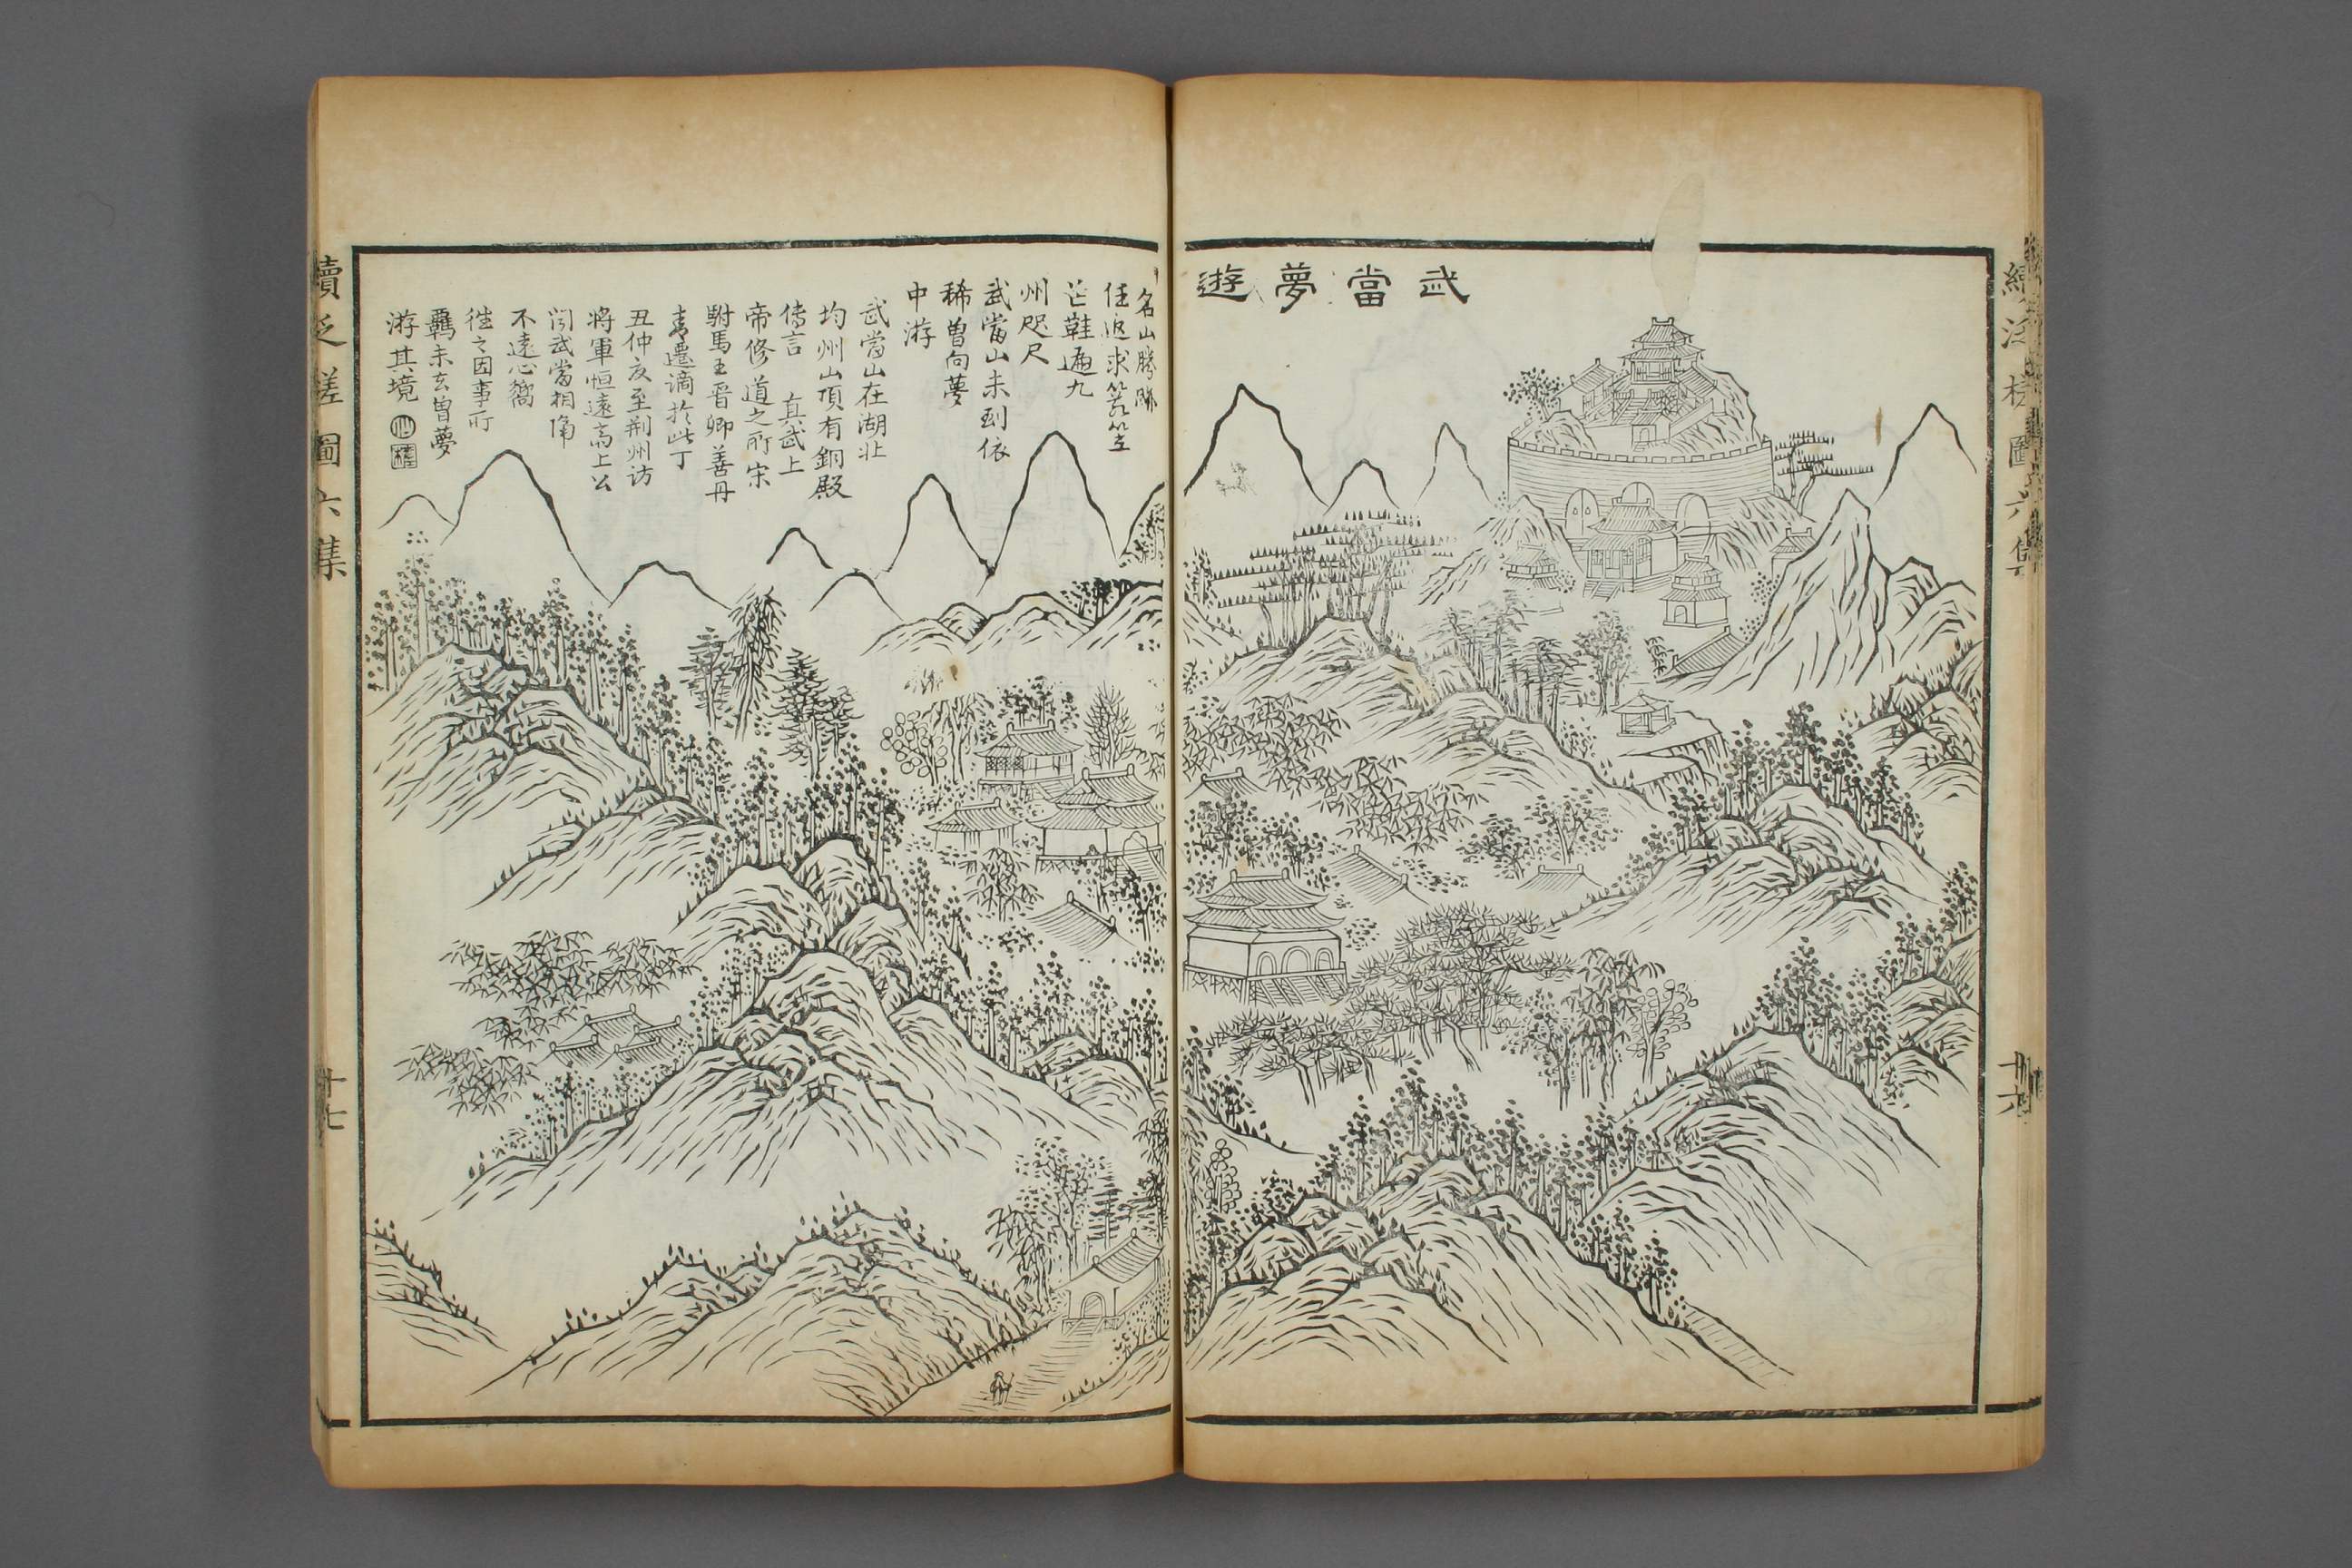 武當夢遊
續泛槎圖六集
十六
名山勝跡
任遐求箬笠
芒鞋遍九
州咫尺
武當山未到依
稀曾向夢
中游
武當山在湖北
均州山頂有銅殿
傳言 真武上
帝修道之所宋
駙馬王晉卿善丹
青遷謫於此丁
丑仲夏至荆州访
將軍恒遠高上公
闻武當相隔
不遠心嚮
往之因事所
羈未去曾夢
游其境
續泛槎圖六集
十七